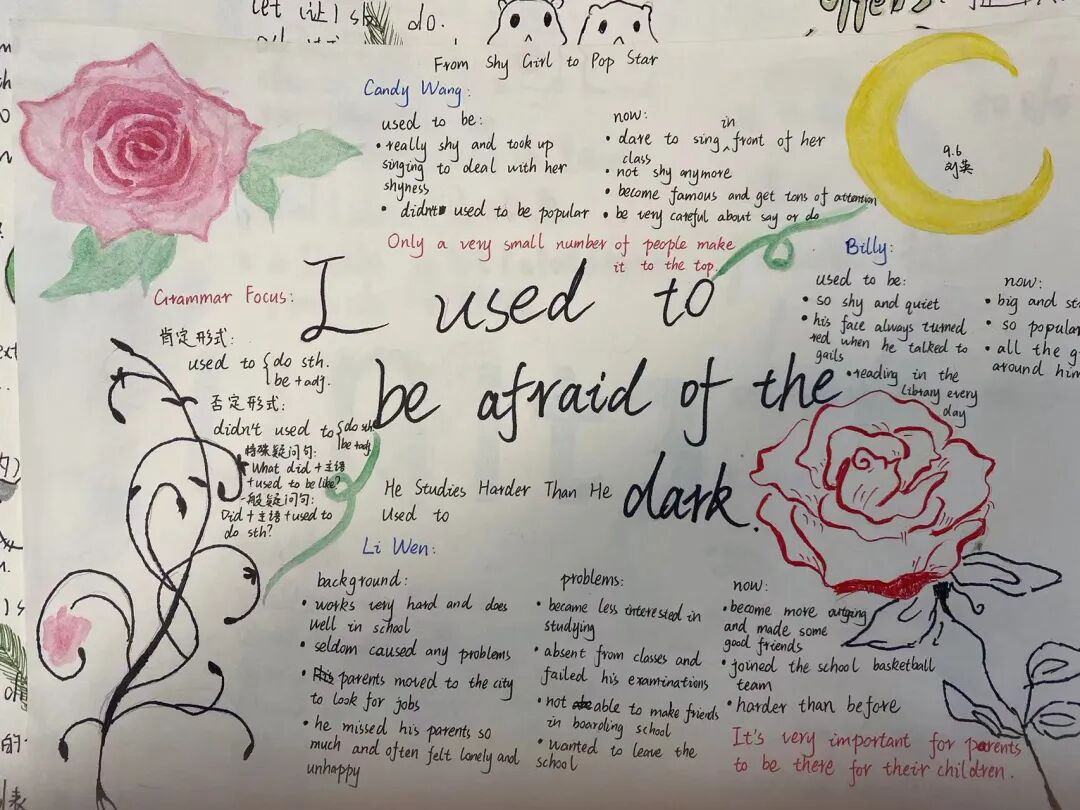 let 让 sb do.
offers
From Shy Girl to Pop Star
Candy Wang:
used to be:
• really shy and took up
singing to deal with her
shyness
• didn't used to be popular
now:
in
• dare to sing ^ front of her
class
• not shy anymore
• become famous and get tons of attention
• be very careful about say or do
Only a very small number of people make
it to the top.
9.6
Billy:
used to be:
• so shy and quiet
• his face always turned
red when he talked to
gails
• reading in the
library every
day
now:
• big and st
• so popula
• all the g
around him
I used to
be afraid of the
dark.
Grammar Focus:
肯定形式:
used to { do sth.
be + adj.
否定形式:
didn't used to { do sth.
be + adj.
特殊疑问句:
What did + 主语
+ used to be like?
一般疑问句:
Did + 主语 + used to
do sth?
He Studies Harder Than He
Used to
Li Wen:
background:
• works very hard and does
well in school
• seldom caused any problems
• parents moved to the city
to look for jobs
• he missed his parents so
much and often felt lonely and
unhappy
problems:
• became less interested in
studying
• absent from classes and
failed his examinations
• not able to make friends
in boarding school
• wanted to leave the
school
now:
• become more outgoing
and made some
good friends
• joined the school basketball
team
• harder than before
It's very important for parents
to be there for their children.